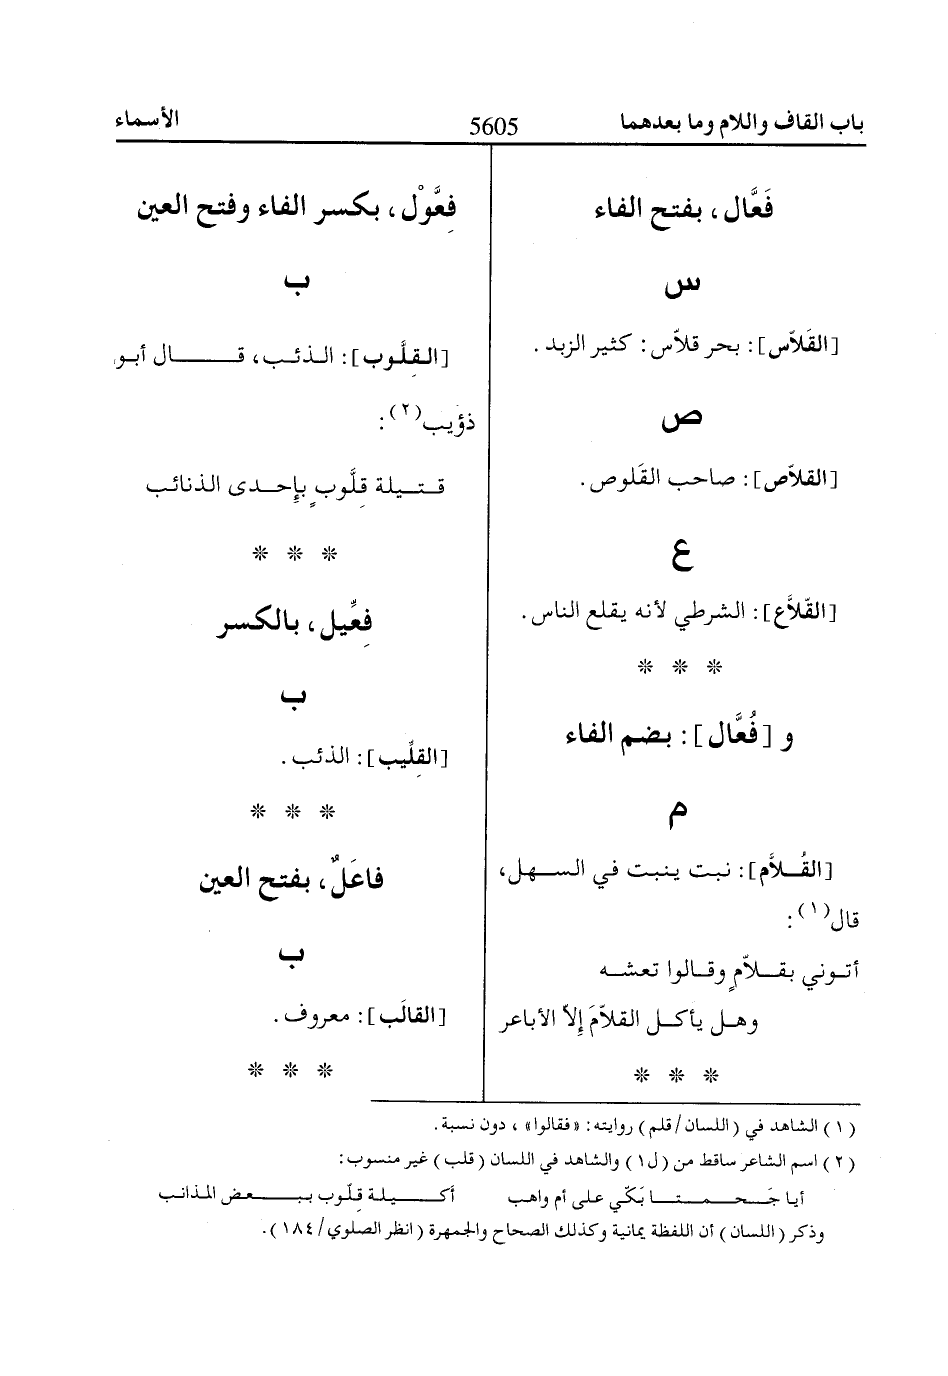 باب القاف واللام وما بعدهما
5605
الأسماء
فَعَّال، بفتح الفاء
س
[القَلاّس]: بحر قلاّس: كثير الزبد.
ص
[القلاّص]: صاحب القَلوص.
ع
[القّلاَّع]: الشرطي لأنه يقلع الناس.
* * *
و [فُعَّال]: بضم الفاء
م
[القُـلاَّم]: نبت ينبت في السهل،
قال(١):
أتوني بقـلاّمٍ وقالوا تعشه
وهل يأكل القلاّمَ إِلاّ الأباعر
* * *
فِعَّوْل، بكسر الفاء وفتح العين
ب
[القِلَّوب]: الذئب، قال أبو
ذؤيب(٢):
قتيلة قِلَّوبٍ بإِحدى الذنائب
* * *
فِعِّيل، بالكسر
ب
[القِلِّيب]: الذئب.
* * *
فاعَلٌ، بفتح العين
ب
[القالَب]: معروف.
* * *
(١) الشاهد في (اللسان/قلم) روايته: «فقالوا»، دون نسبة.
(٢) اسم الشاعر ساقط من (ل١) والشاهد في اللسان (قلب) غير منسوب:
أيا جَحمتا بَكّي على أم واهب أكيلة قِلّوب ببعض المذانب
وذكر (اللسان) أن اللفظة يمانية وكذلك الصحاح والجمهرة (انظر الصلوي/١٨٤).